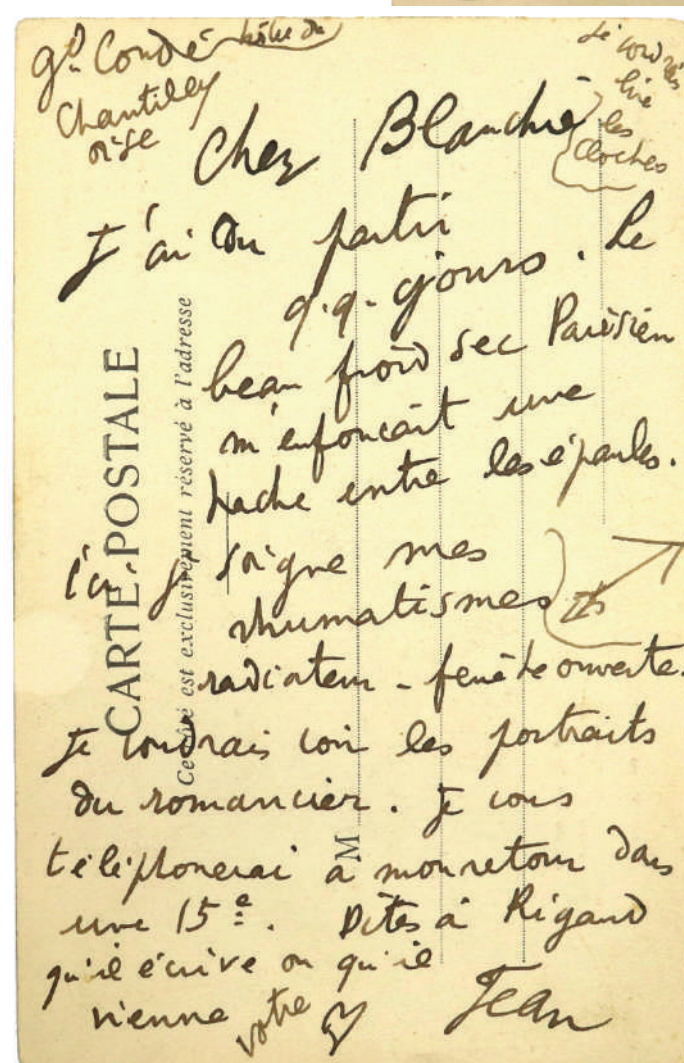 gd Condé hôtel du
Chantilly
oise
je voudrais
lire
les
cloches
Cher Blanche
J'ai du partir
q.q. jours. Le
beau froid sec Parisien
m'enfonçait une
hache entre les épaules.
Ici je soigne mes
rhumatismes
radiateur - fenêtre ouverte.
Je voudrais voir les portraits
du romancier. Je vous
téléphonerai à mon retour dans
une 15e. Dites à Rigaud
qu'il écrive ou qu'il
vienne
votre
Jean
CARTE POSTALE
Ce côté est exclusivement réservé à l'adresse
M